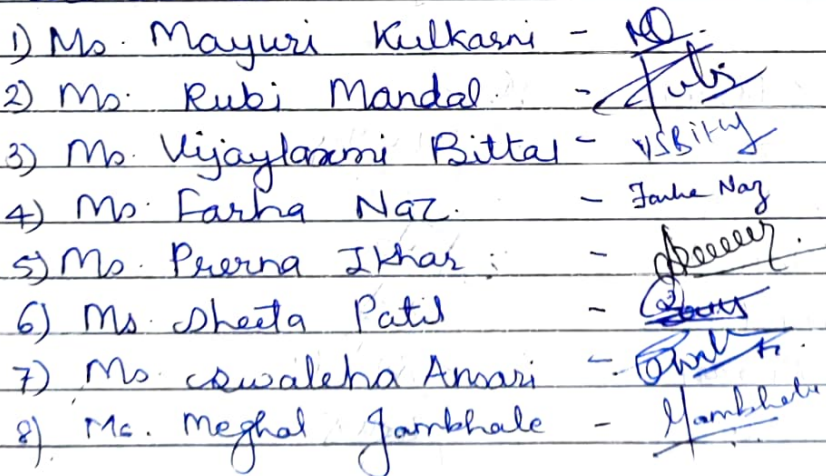 1) Ms. Mayuri Kulkarni -
2) Ms. Rubi Mandal - Rubi
3) Ms. Vijaylaxmi Bittal - VSBittal
4) Ms. Farha Naz. - Farha Naz
5) Ms. Prerna Ikhar -
6) Ms. Sheeta Patil -
7) Ms. Swaleha Ansari -
8) Ms. Meghal Jambhale - Jambhale